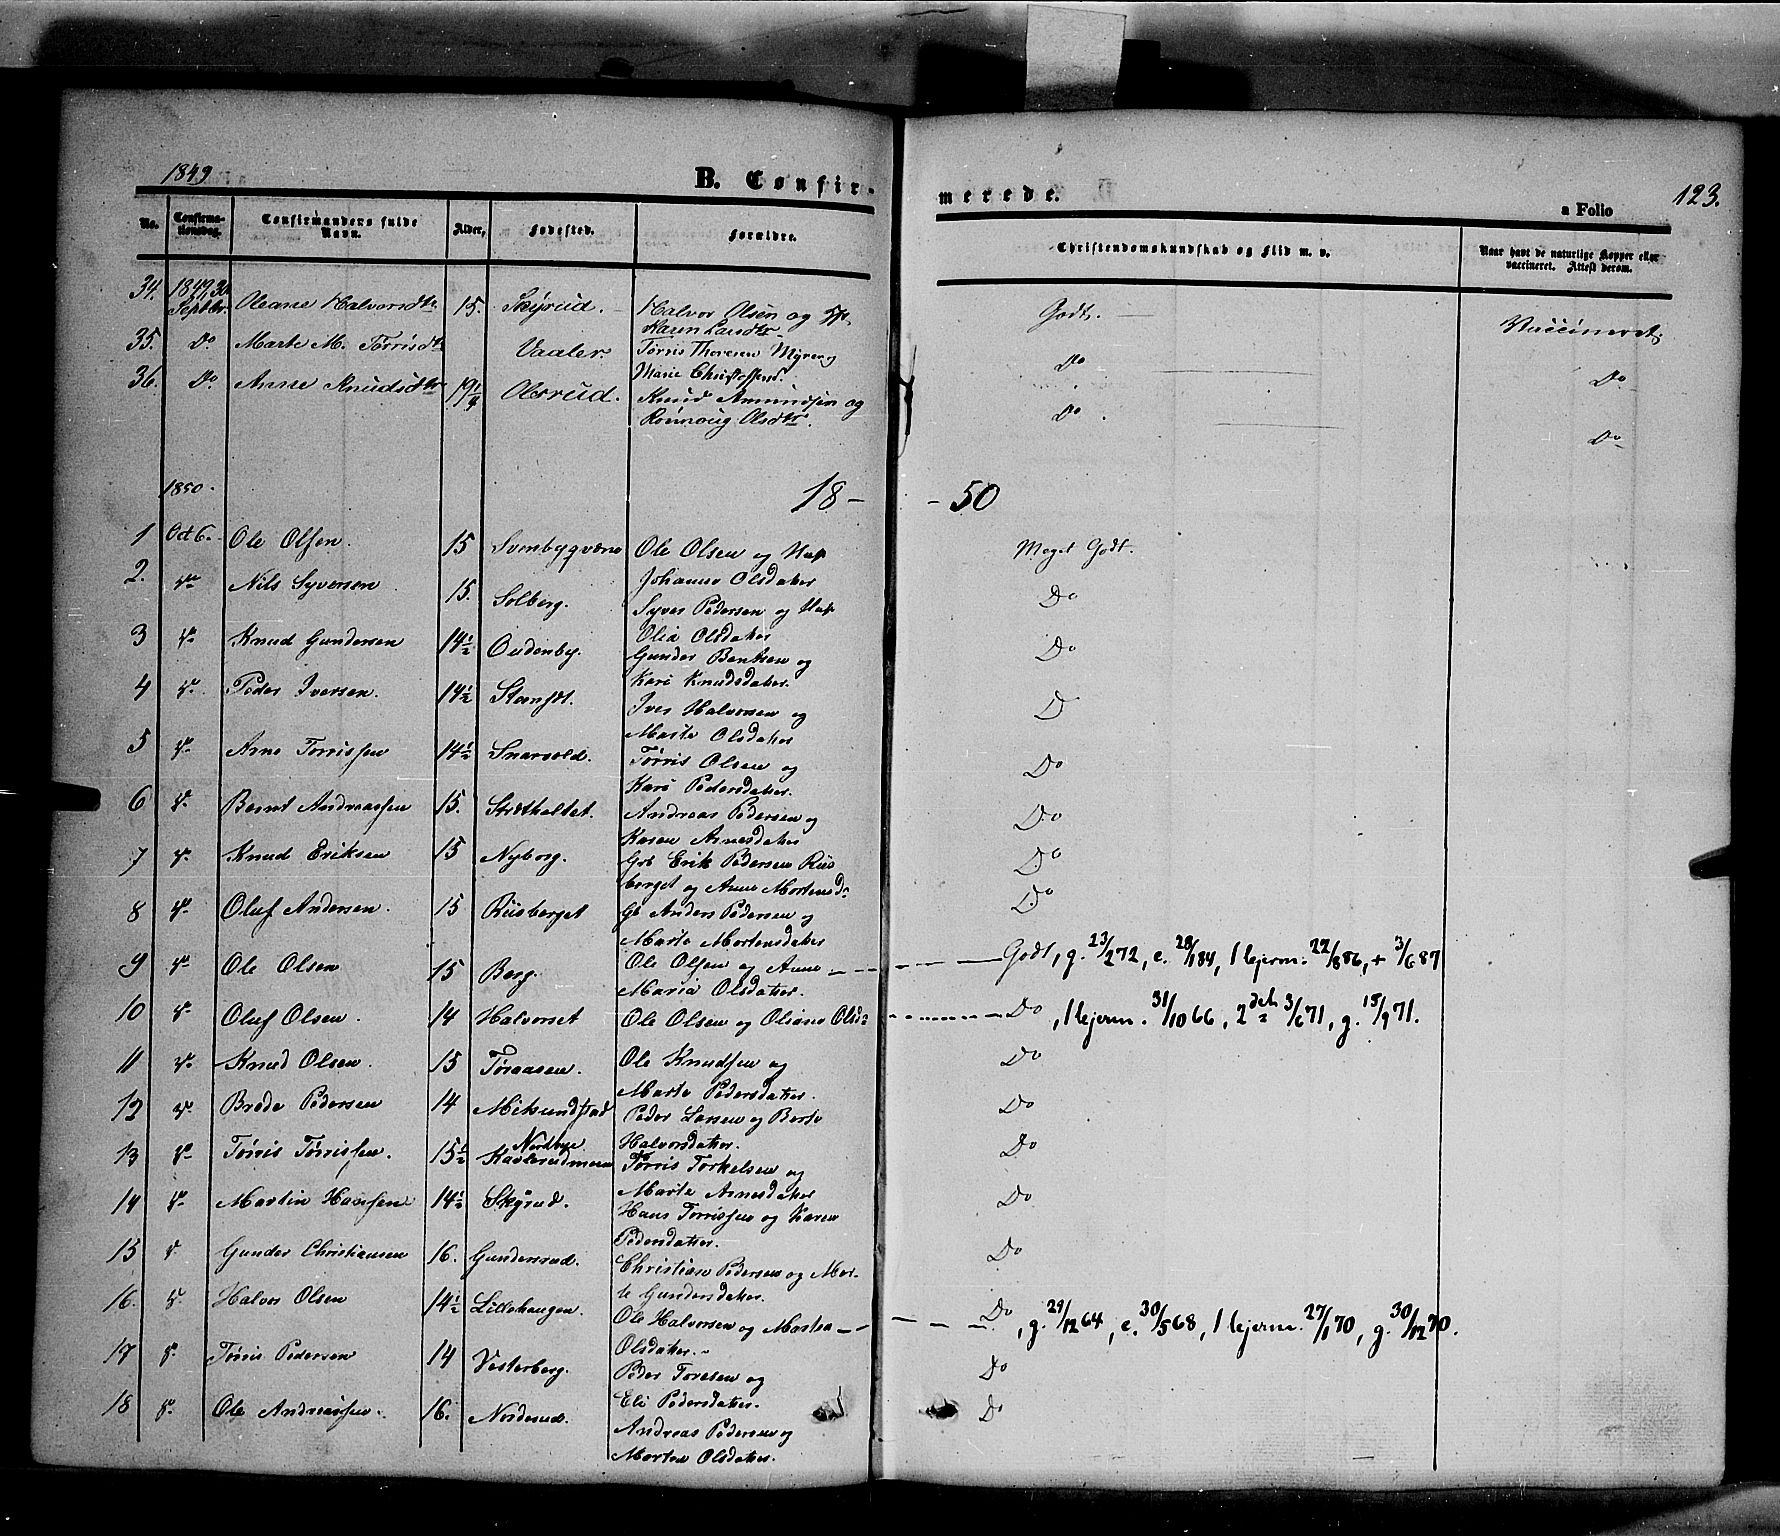 1849
B. Confir-
merede.
a Folio
123.
No. Confirmationsdag. Confirmanders fulde Navn. Alder, Fødested. Forældre. Christendomskundskab og Flid m. v. Naar havt de naturlige Kopper eller vaccineret. Attest derom.
34. 1849, 30 Septbr. Oleane Halvorsdtr 15. Skÿrud. Halvor Olsen og Karen Larsdtr Godt. Vaccineret.
35. Do Marte M. Tørrisdtr Vaaler. Tørris Thoresen Myre og Marie Christoffersd. Do Do
36. Do Anne Knudsdtr 19 1/4 Olsrud. Knud Amundsen og Rønnoug Olsdtr. Do. Do
1850.
18- -50
1 Oct 6. Ole Olsen. 15 Ole Olsen og Johanne Olsdatter Meget Godt.
2. Do Nils Syversen 15. Solberg. Syver Pedersen og Olia Olsdatter Do
3 Do Knud Gundersen 14½ Oudenby. Gunder Bentsen og Kari Knudsdatter. Do
4 Do Peder Iversen. 14½ Iver Halvorsen og Marte Olsdatter Do
5 Do Arne Tørrissen 14½ Snarvold. Tørris Olsen og Kari Pedersdatter. Do
6 Do Bernt Andreassen 15. Andreas Pedersen og Karen Arnesdatter Do
7 Do Knud Eriksen 15 Nyborg. Erik Pedersen Riisberget og Anne Mortensd. Do
8 Do Oluf Andersen. 15 Riisberget Anders Pedersen og Marte Mortensdatter Do
9 Do Ole Olsen 15 Berg. Ole Olsen og Anne Maria Olsdatter. Godt, g. 23/2 72, e. 28/1 84, Hjem. 22/8 86, + 3/6 87
10 Do Oluf Olsen. 14 Halvorset Ole Olsen og Oliane Olsd. Do, Hjem. 31/10 66, 2den 3/6 71, g. 15/9 71.
11 Do Knud Olsen. 15 Toraasen. Ole Knudsen og Marte Pedersdatter. Do
12 Do Brede Pedersen 14 Peder Larsen og Berte Halvorsdatter. Do
13 Do Tørris Tørrissen. 15½ Nordbye Tørris Torkelsen og Marte Arnesdatter Do
14 Do Martin Hanssen 14½ Skÿrud. Hans Tørrissen og Karen Pedersdatter. Do
15 Do Gunder Christiansen 16. Gundersrud. Christian Pedersen og Marte Gundersdatter. Do
16. Do Halvor Olsen 14½ Lillehaugen. Ole Halvorsen og Marthea Olsdatter. Do, g. 29/12 64, e. 30/5 68, Hjem. 27/1 70, g. 30/12 70.
17 Do Tørris Pedersen 14 Vesterberg. Peder Toresen og Eli Pedersdatter. Do
18 Do Ole Andreassen. 16. Norderud. Andreas Pedersen og Marthe Olsdatter. Do